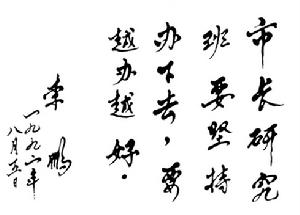 市长研究
班要坚持
办下去，要
越办越好．
李鹏
一九九一年
八月五日